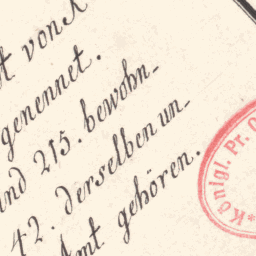 t von K
genennet.
und 215. bewohn-
42. derselben un-
Amt gehören.
Königl. Pr. O